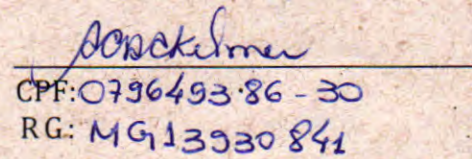 CPF: 0796493.86-30
RG: MG13930841